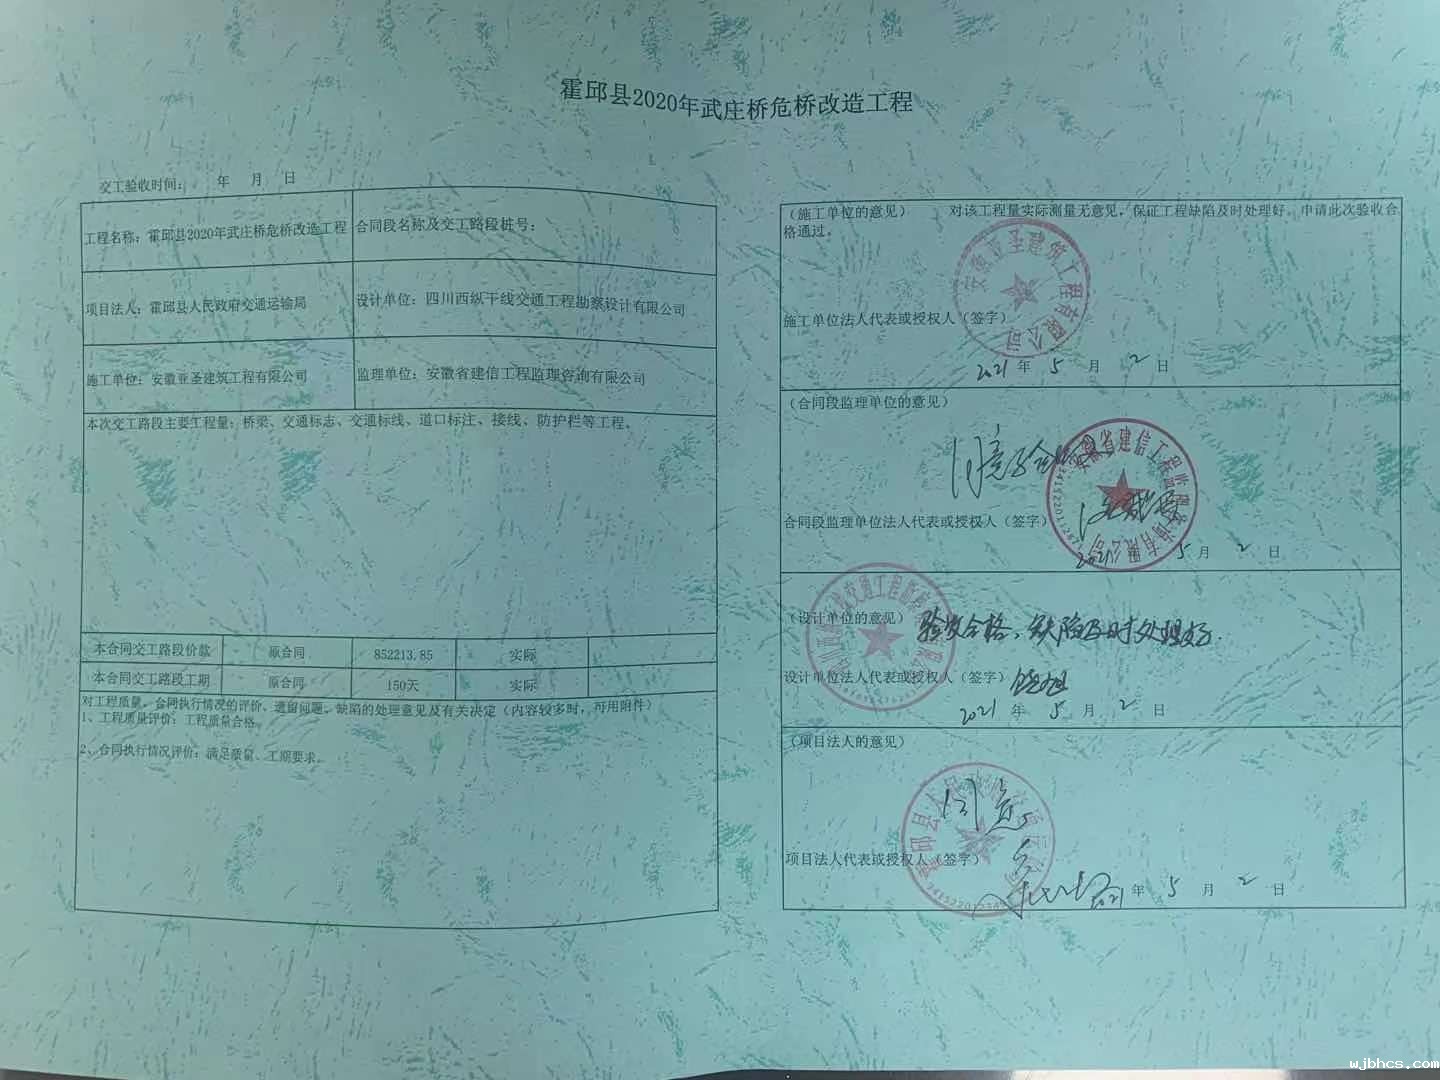 霍邱县2020年武庄桥危桥改造工程
交工验收时间： 年 月 日
工程名称：霍邱县2020年武庄桥危桥改造工程
合同段名称及交工路段桩号：
项目法人：霍邱县人民政府交通运输局
设计单位：四川西纵干线交通工程勘察设计有限公司
施工单位：安徽亚圣建筑工程有限公司
监理单位：安徽省建信工程监理咨询有限公司
本次交工路段主要工程量：桥梁、交通标志、交通标线、道口标注、接线、防护栏等工程。
本合同交工路段价款 原合同 852213.85 实际
本合同交工路段工期 原合同 150天 实际
对工程质量、合同执行情况的评价、遗留问题、缺陷的处理意见及有关决定（内容较多时，可用附件）
1、工程质量评价：工程质量合格。
2、合同执行情况评价：满足质量、工期要求。
（施工单位的意见） 对该工程量实际测量无意见，保证工程缺陷及时处理好，申请此次验收合
格通过。
安徽亚圣建筑工程有限公司
施工单位法人代表或授权人（签字）
2021年 5 月 2 日
（合同段监理单位的意见）
安徽省建信工程监理咨询有限公司
合同段监理单位法人代表或授权人（签字）
2021 5月 2 日
（设计单位的意见） 验收合格，缺陷及时处理好.
设计单位法人代表或授权人（签字）
2021 年 5 月 2 日
（项目法人的意见）
同意
项目法人代表或授权人（签字）
2021年 5 月 2 日
wjbhcs.com